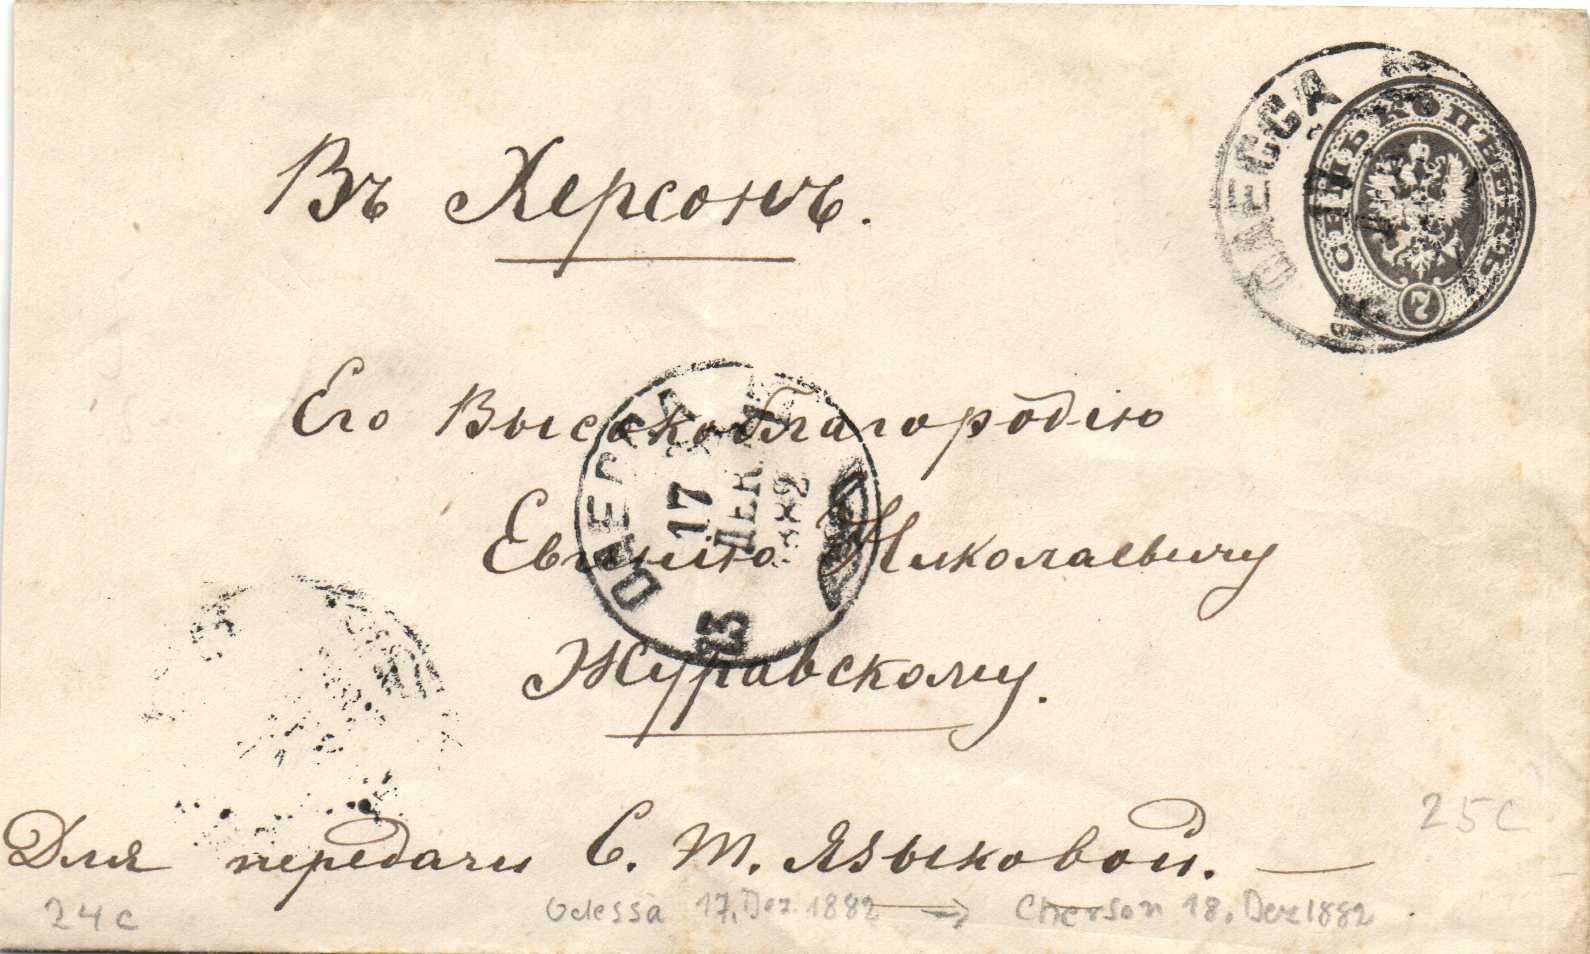 Въ Херсонъ.
ОДЕССА
СЕМЬ КОПѢЕКЪ
7
Его Высокоблагородію
Евгинію Николаевичу
Журавскому.
ОДЕССА
17
ДЕК.
1882
Для передачи С. Т. Языковой.
25c
24c
Odessa 17. Dez. 1882 → Cherson 18. Dez 1882